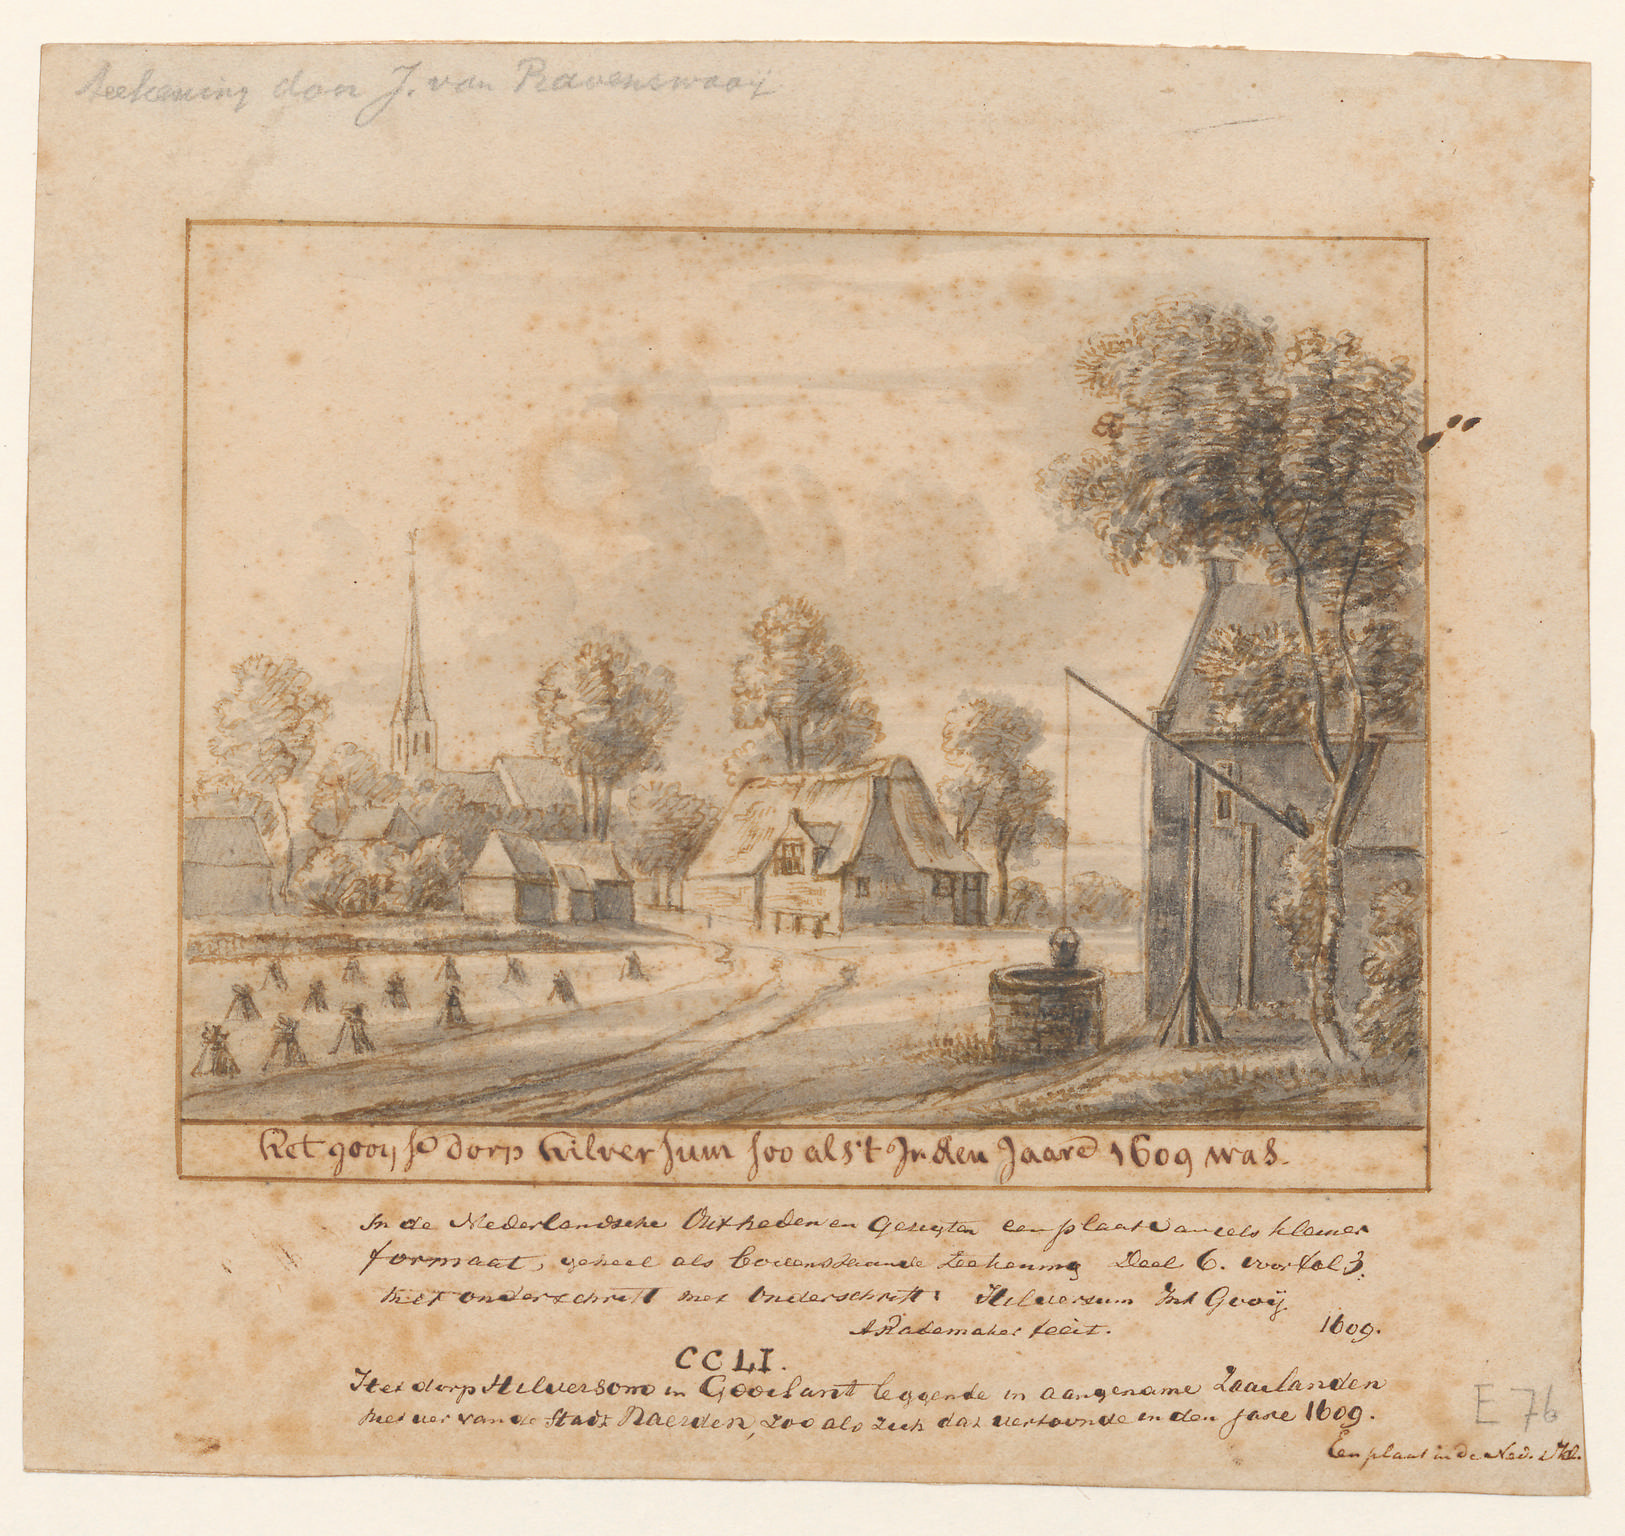 teekening door J. van Ravenswaaij
Het gooijse dorp hilversum soo als't Jn den Jaare 1609 was.
In de Nederlandsche Outheden en Gesigten een plaat van iets kleiner
formaat, geheel als bovenstaande teekening Deel 6. voor fol 3.
met onderschrift met Onderschrift: Hilversum Int Gooij
ARademaker fecit. 1609.
CCLI.
Het dorp Hilversom in Gooilant leggende in aangename Zaailanden
niet ver van de Stadt Naerden, zoo als zich dat vertoonde in den jare 1609.
E 76
Een plaat in de Ned.